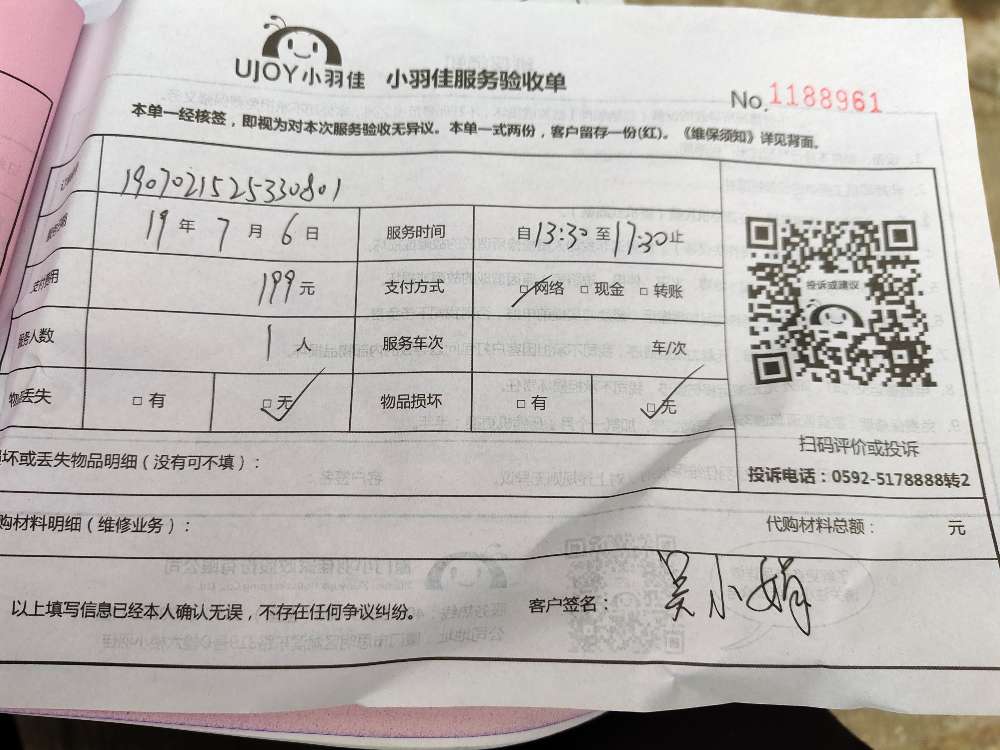 UJOY小羽佳 小羽佳服务验收单
No.1188961
本单一经核签，即视为对本次服务验收无异议。本单一式两份，客户留存一份(红)。《维保须知》详见背面。
1907021525330801
19年7月6日 服务时间 自13:30至17:30止
支付费用 199元 支付方式 ☑网络 □现金 □转账
人数 1人 服务车次 车/次
物品丢失 □有 ☑无 物品损坏 □有 ☑无
投诉或建议
扫码评价或投诉
投诉电话：0592-5178888转2
坏或丢失物品明细（没有可不填）：
购材料明细（维修业务）： 代购材料总额： 元
以上填写信息已经本人确认无误，不存在任何争议纠纷。 客户签名： 吴小娟